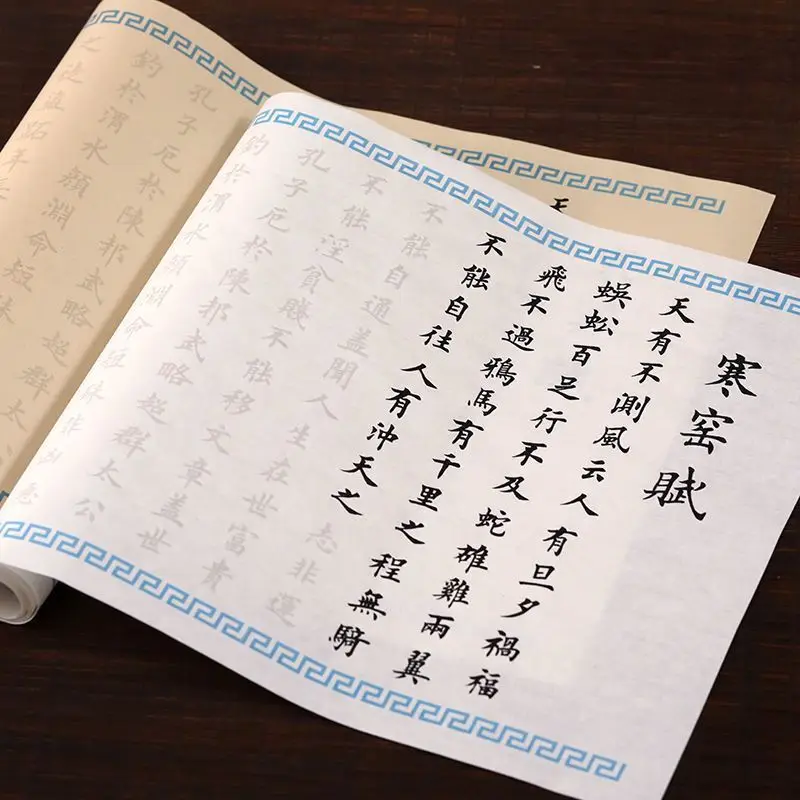 寒窑賦
天有不測風云人有旦夕禍福
蜈蚣百足行不及蛇雄雞兩翼
飛不過鴉馬有千里之程無騎
不能自往人有沖天之志非運
不能自通蓋聞人生在世富貴
不能淫貧賤不能移文章蓋世
孔子厄於陳邦武略超群太公
釣於渭水顏淵命短殊非
天
孔子厄於陳邦武略超群太公
釣於渭水顏淵命短殊
之徒盜跖年